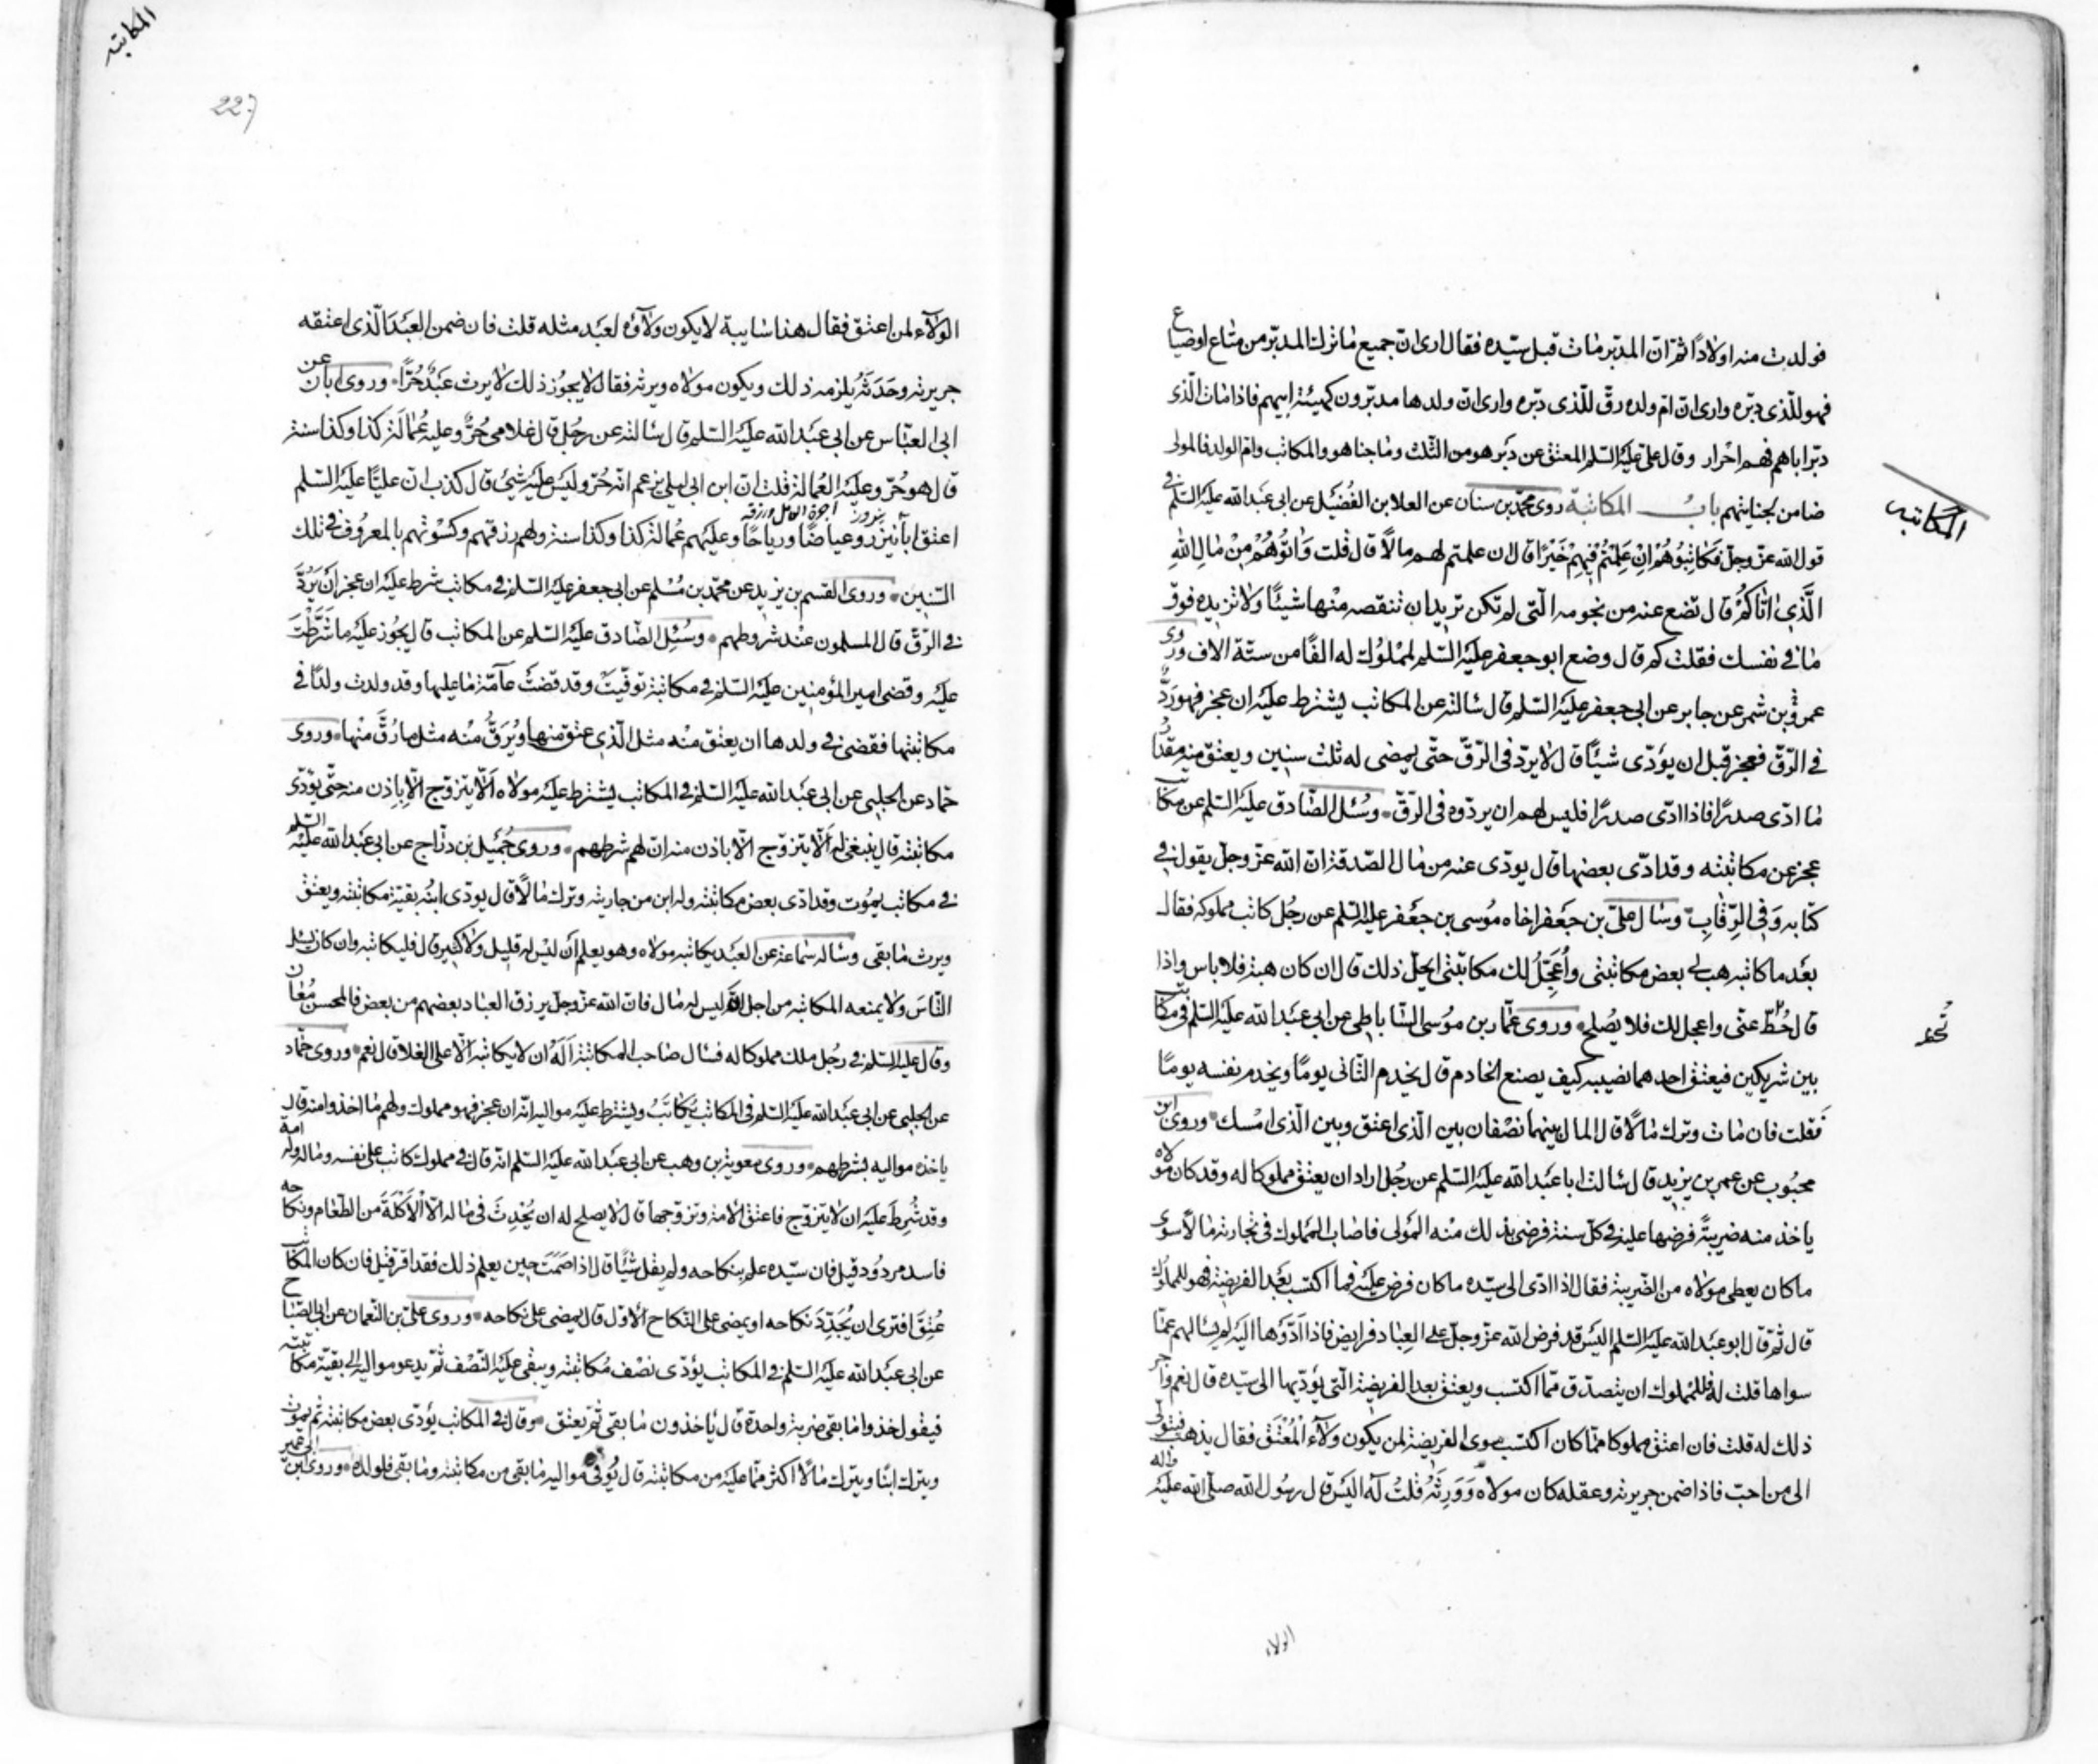 فولدت منه اولادًا ثمّ انّ المدبّر مات قبل سيّده فقال ارى انّ جميع ما ترك المدبّر من متاع اوضياع
فهو للّذى دبّره وارى انّ امّ ولده رقّ للّذى دبّره وارى انّ ولدها مدبّرون كهيئة ابيهم فاذا مات الّذى
دبّر اباهم فهم احرار وقال علىّ عليه السّلم المعتق عن دبر هو من الثّلث وما جنا هو والمكاتب وامّ الولد فالمولى
ضامن لجنايتهم باب المكاتبة روى محمّد بن سنان عن العلا بن الفضيل عن ابى عبد الله عليه السّلم فى
المكاتبه
قول الله عزّ وجلّ فَكَاتِبُوهُمْ اِنْ عَلِمْتُمْ فِيهِمْ خَيْرًا قال ان علمتم لهم مالًا قال قلت وَاتُوهُمْ مِنْ مَالِ اللهِ
الَّذِى اتَاكُمْ قال تضع عنه من نجومه الّتى لم تكن تريد ان تنقصه منها شيئًا ولا تزيده فوق
ما فى نفسك فقلت كم قال وضع ابو جعفر عليه السّلم لمملوك له الفًا من ستّة الاف وروى
عمرو بن شمر عن جابر عن ابى جعفر عليه السّلم قال سالته عن المكاتب يشترط عليه ان عجز فهو ردّ
فى الرّقّ فعجز قبل ان يؤدّى شيئًا قال لا يردّ فى الرّقّ حتّى يمضى له ثلث سنين ويعتق منه مقدار
ما ادّى صدرًا فاذا ادّى صدرًا فليس لهم ان يردّوه فى الرّقّ وسُئل الصّادق عليه السّلم عن مكاتب
عجز عن مكاتبته وقد ادّى بعضها قال يودّى عنه من مال الصّدقة انّ الله عزّ وجلّ يقول فى
كتابه وَفِى الرِّقَابِ وسال علىّ بن جعفر اخاه موسى بن جعفر عليه السّلم عن رجل كاتب مملوكه فقال
بعد ما كاتبه هب لى بعض مكاتبتى واُعجّلُ لك مكاتبتى ايحلّ ذلك قال ان كان هبة فلا باس واذا
قال حُطّ عنّى واعجل لك فلا يصلح وروى عمّار بن موسى السّاباطى عن ابى عبد الله عليه السّلم فى مكاتب
تُحط
بين شريكين فيعتق احدهما نصيبه كيف يصنع الخادم قال يخدم الثّانى يومًا ويخدم نفسه يومًا
فقلت فان مات وترك مالًا قال المال بينهما نصفان بين الّذى اعتق وبين الّذى امسك وروى ابن
محبوب عن عمر بن يزيد قال سالت ابا عبد الله عليه السّلم عن رجل اراد ان يعتق مملوكا له وقد كان مولاه
ياخذ منه ضريبةً فرضها عليه فى كلّ سنة فرضى بذلك منه المولى فاصاب المملوك فى تجارته مالًا سوى
ما كان يعطى مولاه من الضّريبة فقال اذا ادّى الى سيّده ما كان فرض عليه فما اكتسب بعد الفريضة فهو للمملوك
قال ثمّ قال ابو عبد الله عليه السّلم اليس قد فرض الله عزّ وجلّ على العباد فرايض فاذا ادّوها اليه لم يسالهم عمّا
سواها قلت له فللمملوك ان يتصدّق ممّا اكتسب ويعتق بعد الفريضة الّتى يؤدّيها الى سيّده قال نعم واجر
ذلك له قلت فان اعتق مملوكا ممّا كان اكتسب سوى الفريضة لمن يكون ولآء المُعْتَق فقال يذهب فيتولّى
الى من احبّ فاذا ضمن جريرته وعقله كان مولاه وَوَرِثَهُ قلتُ له اليس قال رسول الله صلى الله عليه واله
الولاء
المكاتبه
227
الولآء لمن اعتق فقال هذا سايبة لا يكون ولآؤه لعبد مثله قلت فان ضمن العبد الّذى اعتقه
جريرته وحدثه يلزمه ذلك ويكون مولاه ويرثه فقال لا يجوز ذلك لا يرث عبدٌ حُرًّا وروى ابان عن
ابى العبّاس عن ابى عبد الله عليه السّلم قال سالته عن رجل قال غلامى حُرٌّ وعليه عُمالة كذا وكذا سنة
قال هو حُرّ وعليه العُمالة قلت انّ ابن ابى ليلى يزعم انّه حُرّ وليس عليه شئ قال كذب انّ عليًّا عليه السّلم
اعتق ابا نيزر وعياضًا ورياحًا وعليهم عُمالة كذا وكذا سنة ولهم رزقهم وكسوتهم بالمعروف فى تلك
السّنين وروى القسم بن يزيد عن محمّد بن مُسلم عن ابى جعفر عليه السّلم فى مكاتب شرط عليه ان عجز ان يَرُدَّ
فى الرّقّ قال المسلمون عند شروطهم وسُئِل الصّادق عليه السّلم عن المكاتب قال يجوز عليه ما شَرَطْتَ
عليه وقضى امير المؤمنين عليه السّلم فى مكاتبة توفّيت وقد قضت عآمّة ما عليها وقد ولدت ولدًا فى
مكاتبتها فقضى فى ولدها ان يعتق منه مثل الّذى عتق منها ويُرَقّ منه مثل ما رُقَّ منها وروى
حمّاد عن الحلبى عن ابى عبد الله عليه السّلم فى المكاتب يشترط عليه مولاه الّا يتزوّج الّا باذن منه حتّى يؤدّى
مكاتبته قال ينبغى له الّا يتزوّج الّا باذن منه انّ لهم شرطهم وروى جميل بن درّاج عن ابى عبد الله عليه السلم
فى مكاتب يموت وقد ادّى بعض مكاتبته وله ابن من جاريته وترك مالًا قال يودّى ابنه بقيّة مكاتبته ويعتق
ويرث ما بقى وساله سماعة عن العبد يكاتبه مولاه وهو يعلم ان ليس له قليل ولا كثير قال فليكاتبه وان كان يسئل
النّاس ولا يمنعه المكاتبه من اجل انّه ليس له مال فانّ الله عزّ وجلّ يرزق العباد بعضهم من بعض فالمحسن مُعان
وقال عليه السّلم فى رجل ملك مملوكا له فسال صاحب المكاتبة اَلَهُ ان لا يكاتبه الّا على الغلا قال نعم وروى حمّاد
عن الحلبى عن ابى عبد الله عليه السّلم فى المكاتب يُكاتَبُ ويشترط عليه مواليه انّه ان عجز فهو مملوك ولهم ما اخذوا منه قال
ياخذه مواليه بشرطهم وروى معوية بن وهب عن ابى عبد الله عليه السّلم انّه قال فى مملوك كاتب على نفسه وماله وله امة
وقد شُرِطَ عليه ان لا يتزوّج فاعتق الامة وتزوّجها قال لا يصلح له ان يُحْدِثَ فى ماله الّا الاَكْلَةَ من الطّعام ونكاحه
فاسد مردود قيل فان سيّده علم بنكاحه ولم يقل شيئًا قال اذا صَمَتَ حين يعلم ذلك فقد اقرّ قيل فان كان المكاتب
عُتِقَ افترى ان يُجَدِّدَ نكاحه او يمضى على النّكاح الاوّل قال يمضى على نكاحه وروى علىّ بن النّعمان عن ابى الصّباح
عن ابى عبد الله عليه السّلم فى المكاتب يؤدّى نصف مكاتبته ويبقى عليه النّصف ثمّ يدعو مواليه الى بقيّة مكاتبته
فيقول خذوا ما بقى ضربة واحدة قال ياخذون ما بقى ثمّ يعتق وقال فى المكاتب يؤدّى بعض مكاتبته ثم يموت
ويترك ابنًا ويترك مالًا اكثر ممّا عليه من مكاتبته قال يُوفى مواليه ما بقى من مكاتبته وما بقى فلولده وروى ابن ابى عمير